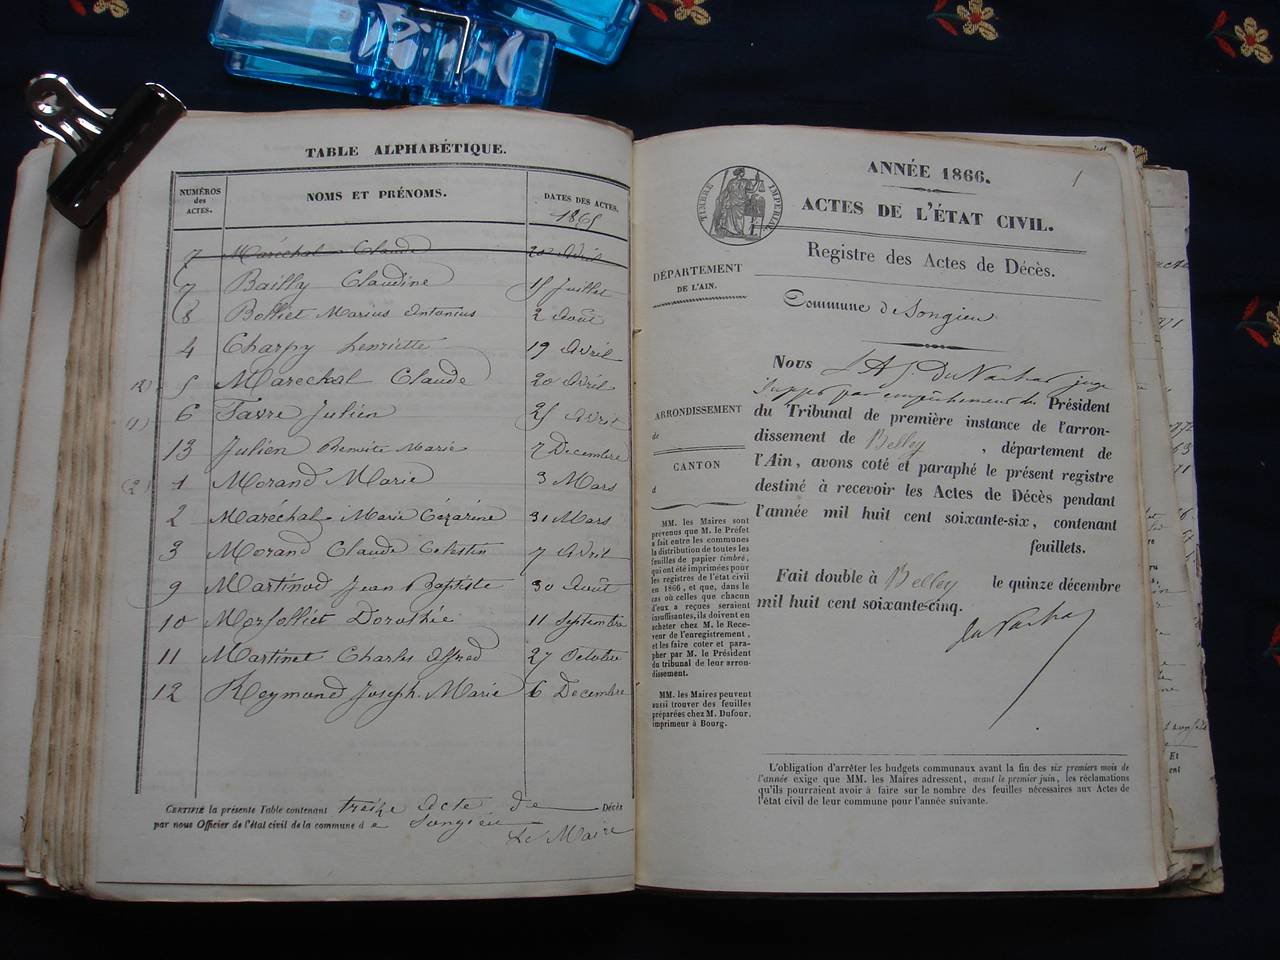 TABLE ALPHABÉTIQUE.
NUMÉROS des ACTES.
NOMS ET PRÉNOMS.
DATES DES ACTES.
1865
7 Maréchal Claude 20 Avril
7 Bailly Claudine 15 Juillet
8 Bolliet Marius Antonius 2 Août
4 Charpy henriette 19 Avril
5 Marechal Claude 20 Avril
6 Favre Julien 25 Avril
(1)
13 Julien Benoite Marie 7 Decembre
(2) 1 Morand Marie 3 Mars
2 Maréchal Marie Cézarine 31 Mars
3 Morand Claude Celestin 7 Avril
9 Martinod Jean Baptiste 30 Août
10 Morfolliet Dorothée 11 Septembre
11 Martinet Charles Alfred 27 Octobre
12 Reymond Joseph Marie 6 Decembre
CERTIFIÉ la présente Table contenant treize acte de Décès
par nous Officier de l'état civil de la commune d e Songieu
Le Maire
1
TIMBRE IMPÉRIAL
ANNÉE 1866.
ACTES DE L'ÉTAT CIVIL.
Registre des Actes de Décès.
DÉPARTEMENT
DE L'AIN.
Commune de Songieu
ARRONDISSEMENT
de
CANTON
d
MM. les Maires sont
prévenus que M. le Préfet
a fait entre les communes
la distribution de toutes les
feuilles de papier timbré,
qui ont été imprimées pour
les registres de l'état civil
en 1866, et que, dans le
cas où celles que chacun
d'eux a reçues seraient
insuffisantes, ils doivent en
acheter chez M. le Rece-
veur de l'enregistrement,
et les faire coter et para-
pher par M. le Président
du tribunal de leur arron-
dissement.
MM. les Maires peuvent
aussi trouver des feuilles
préparées chez M. Dufour,
imprimeur à Bourg.
Nous juge
supp par empêchement du Président
du Tribunal de première instance de l'arron-
dissement de Belley , département de
l'Ain, avons coté et paraphé le présent registre
destiné à recevoir les Actes de Décès pendant
l'année mil huit cent soixante-six, contenant
feuillets.
Fait double à Belley le quinze décembre
mil huit cent soixante-cinq.
L'obligation d'arrêter les budgets communaux avant la fin des six premiers mois de
l'année exige que MM. les Maires adressent, avant le premier juin, les réclamations
qu'ils pourraient avoir à faire sur le nombre des feuilles nécessaires aux Actes de
l'état civil de leur commune pour l'année suivante.